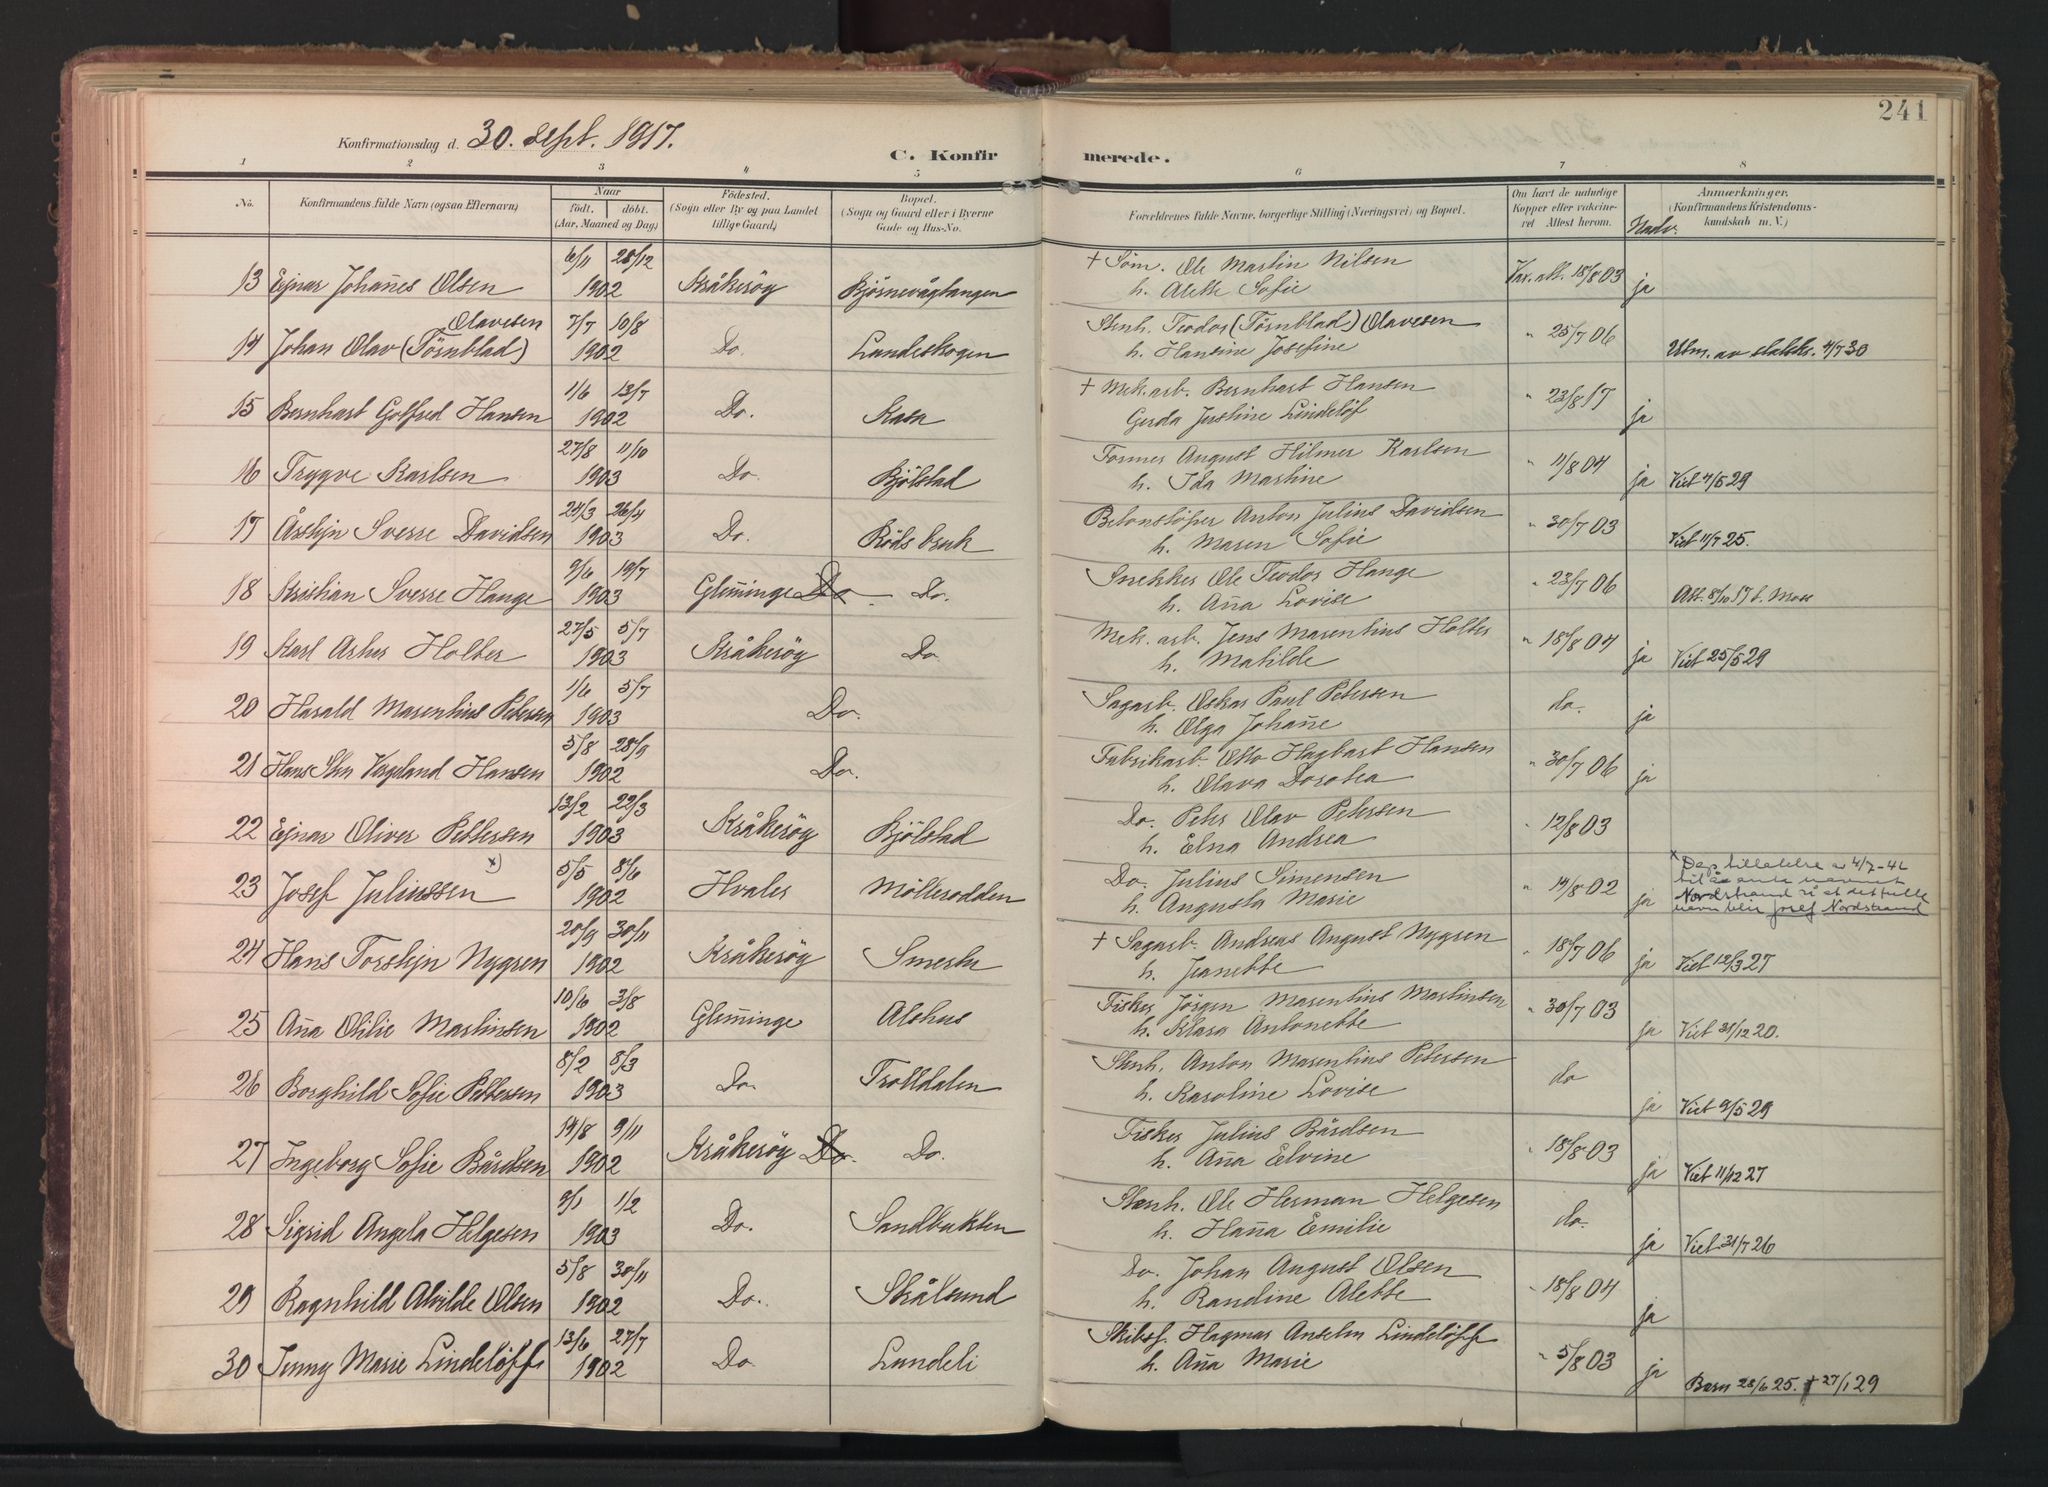 241
Konfirmationsdag d. 30. Sept. 1917.
C. Konfirmerede.
1 2 3 4 5 6 7 8
No. Konfirmandens fulde Navn (ogsaa Efternavn) Naar født. døbt. (Aar, Maaned og Dag) Fødested. (Sogn eller By og paa Landet tillige Gaard) Bopæl. (Sogn og Gaard eller i Byerne Gade og Hus-No. Forældrenes fulde Navne, borgerlige Stilling (Næringsvei) og Bopæl. Om havt de naturlige Kopper eller vakcineret Attest herom. Nadv. Anmærkninger. (Konfirmandens Kristendomskundskab m. V.)
13 Ejnar Johañes Olsen 6/11 28/12 1902 Kråkerøy Bjørnevågtangen † Søm. Ole Martin Nilsen Vac. att. 18/8 03 ja
h. Alette Sofie
14 Johan Olav (Törnblad) Olavesen 7/7 10/8 1902 Do. Lundeskogen Stenh. Teodor (Törnblad) Olavesen " 25/7 06 Utm. av statsk. 4/7 30
h. Hansine Josefine
15 Bernhart Golfred Hansen 1/6 13/7 1902 Do. Kasa † Mek. arb. Bernhart Hansen " 23/8 17 ja
Gerda Justine Lindeløf
16 Trygve Karlsen 27/8 11/10 1903 Do. Bjølstad Former August Hilmer Karlsen " 11/8 04 ja Viet 4/5 29
h. Ida Martine
17 Åstejn Sverre Davidsen 24/3 26/4 1903 Do. Røds bruk Betonstøper Anton Julius Davidsen " 30/7 03 Viet 11/7 25.
h. Maren Sofie
18 Kristian Sverre Hange 9/6 19/7 1903 Gleminge Do. Do. Snekker Ole Teodor Hange " 23/7 06 Att. 8/10 17 t. Moss
h. Aña Lovise
19 Karl Asker Holter 27/5 5/7 1903 Kråkerøy Do Mek. arb. Jens Marentius Holter " 18/8 04 ja Viet 25/5 29
h. Matilde
20 Harald Marentius Petersen 1/6 5/7 1903 Do. Sagarb. Oskar Paul Petersen do. ja
h. Olga Johañe
21 Hans Vegeland Hansen 5/8 28/9 1902 Do. Fabrikarb. Otto Hagbart Hansen " 30/7 06 ja
h. Olava Dorotea
22 Ejnar Oliver Pettersen 13/2 22/3 1903 Kråkerøy Bjølstad Do. Peter Olav Petersen " 12/8 03
h. Elna Andrea
23 Josef Juliussen x) 5/5 8/6 1902 Hvaler Mölleródden Do. Julius Simensen " 19/8 02 ja x Dep tillatelse av 4/7-42
h. Augusta Marie til å anta navnet
Nordstrand så at det fulle
navn blir Josef Nordstrand
24 Hans Torstejn Nygren 20/9 30/11 1902 Kråkerøy Smertu † Sagarb. Andreas August Nygren " 18/7 06 ja Viet 12/3 27
h. Jeanette
25 Aña Otilie Martinsen 10/6 3/8 1902 Gleminge Alshus Fisker Jørgen Marentius Martinsen " 30/7 03 ja Viet 31/12 20.
h. Klara Antonette
26 Borghild Sofie Pettersen 8/2 8/3 1903 Do. Trolldalen Stenh. Anton Marentius Petersen do ja Viet 9/5 29
h. Karoline Lovise
27 Ingeborg Sofie Bårdsen 14/8 9/11 1902 Kråkerøy Do. Do. Fisker Julius Bårdsen " 18/8 03 ja Viet 11/12 27
h. Aña Elvine
28 Sigrid Angela Helgesen 9/1 1/2 1903 Do. Sandbukten Stenh. Ole Herman Helgesen do. ja Viet 31/7 26
h. Haña Emilie
29 Ragnhild Alvilde Olsen 5/8 30/11 1902 Do. Skålsund Do. Johan August Olsen " 18/8 04 ja
h. Randine Alette
30 Jenny Marie Lindeløff 13/6 27/7 1902 Do. Lundeli Skibsf. Hagmar Anselm Lindeløff " 5/8 03 ja Barn 28/6 25. † 27/1 29
h. Aña Marie